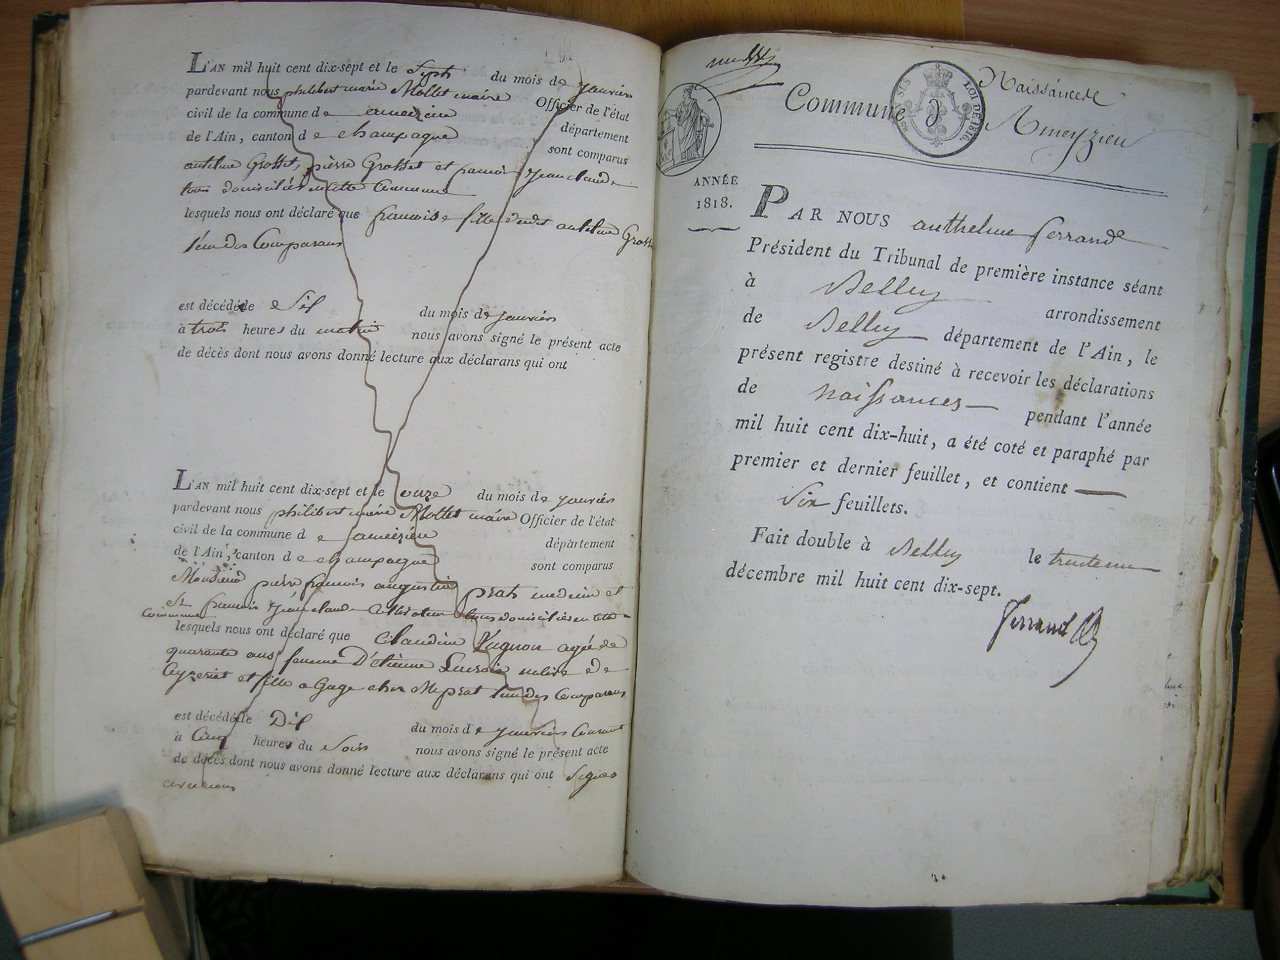 L'AN mil huit cent dix-sept et le Sept du mois de janvier
pardevant nous philibert marie Mollet maire Officier de l'état
civil de la commune de ameizieu département
de l'Ain, canton de champagne sont comparus
antelme Grosset, pierre Grosset et françois jeanclaude
tous domiciliés en cette Commune
lesquels nous ont déclaré que françoise fille dudit antelme Grosset
l'un des Comparans
est décédée le Six du mois de janvier
à trois heures du matin nous avons signé le présent acte
de décès dont nous avons donné lecture aux déclarans qui ont
L'AN mil huit cent dix-sept et le onze du mois de janvier
pardevant nous philibert marie Mollet maire Officier de l'état
civil de la commune de ameizieu département
de l'Ain, canton de champagne sont comparus
Monsieur pierre françois augustin prat medecin et
Sr françois jeanclaude tous domiciliés en cette
Commune
lesquels nous ont déclaré que Claudine Vugnon agée de
quarante ans femme D'etienne native de
Ceyzeriet et fille a Gage chez Mr prat l'un des Comparans
est décédée le Dix du mois de janvier Courant
à Cinq heures du Soir nous avons signé le présent acte
de décès dont nous avons donné lecture aux déclarans qui ont Signés
avec nous
Naissances
Commune d Ameyzieu
LOI DE 1816.
ANNÉE
1818.
PAR NOUS anthelme ferrand
Président du Tribunal de première instance séant
à Belley arrondissement
de Belley département de l'Ain, le
présent registre destiné à recevoir les déclarations
de naissances pendant l'année
mil huit cent dix-huit, a été coté et paraphé par
premier et dernier feuillet, et contient
Six feuillets.
Fait double à Belley le trente un
décembre mil huit cent dix-sept.
ferrand